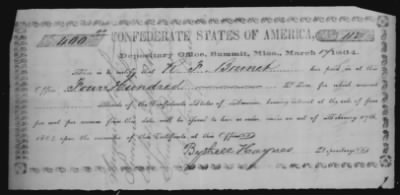 400 CONFEDERATE STATES OF AMERICA, No. 112
Depositary Office, Summit, Miss., March 1864.
This is to certify that R. F. Brunet has paid in at this
Office Four Hundred Dollars, for which amount
Bonds of the Confederate States of America, bearing interest at the rate of four
per cent per annum from this date will be issued to him or order under an act of February 17th
1864 upon the surrender of this Certificate at this Office.
Haynes Depositary